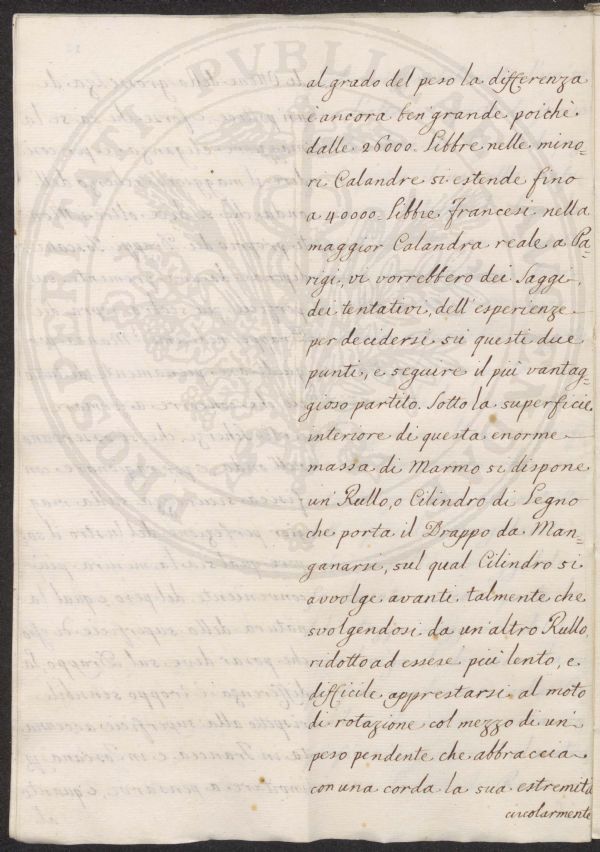 al grado del peso la differenza
è ancora ben grande poichè
dalle 26000. Libbre nelle mino=
ri Calandre si estende fino
a 40000. Libbre Francesi nella
maggior Calandra reale a Pa=
rigi, vi vorrebbero dei Saggi,
dei tentativi, dell'esperienze
per decidersi su questi due
punti, e seguire il più vantag=
gioso partito. Sotto la superficie
interiore di questa enorme
massa di Marmo si dispone
un Rullo, o Cilindro di Legno
che porta il Drappo da Man=
ganarsi, sul qual Cilindro si
avvolge avanti talmente che
svolgendosi da un'altro Rullo
ridotto ad essere più lento, e
difficile apprestarsi al moto
di rotazione col mezzo di un
peso pendente che abbraccia
con una corda la sua estremità
circolarmente